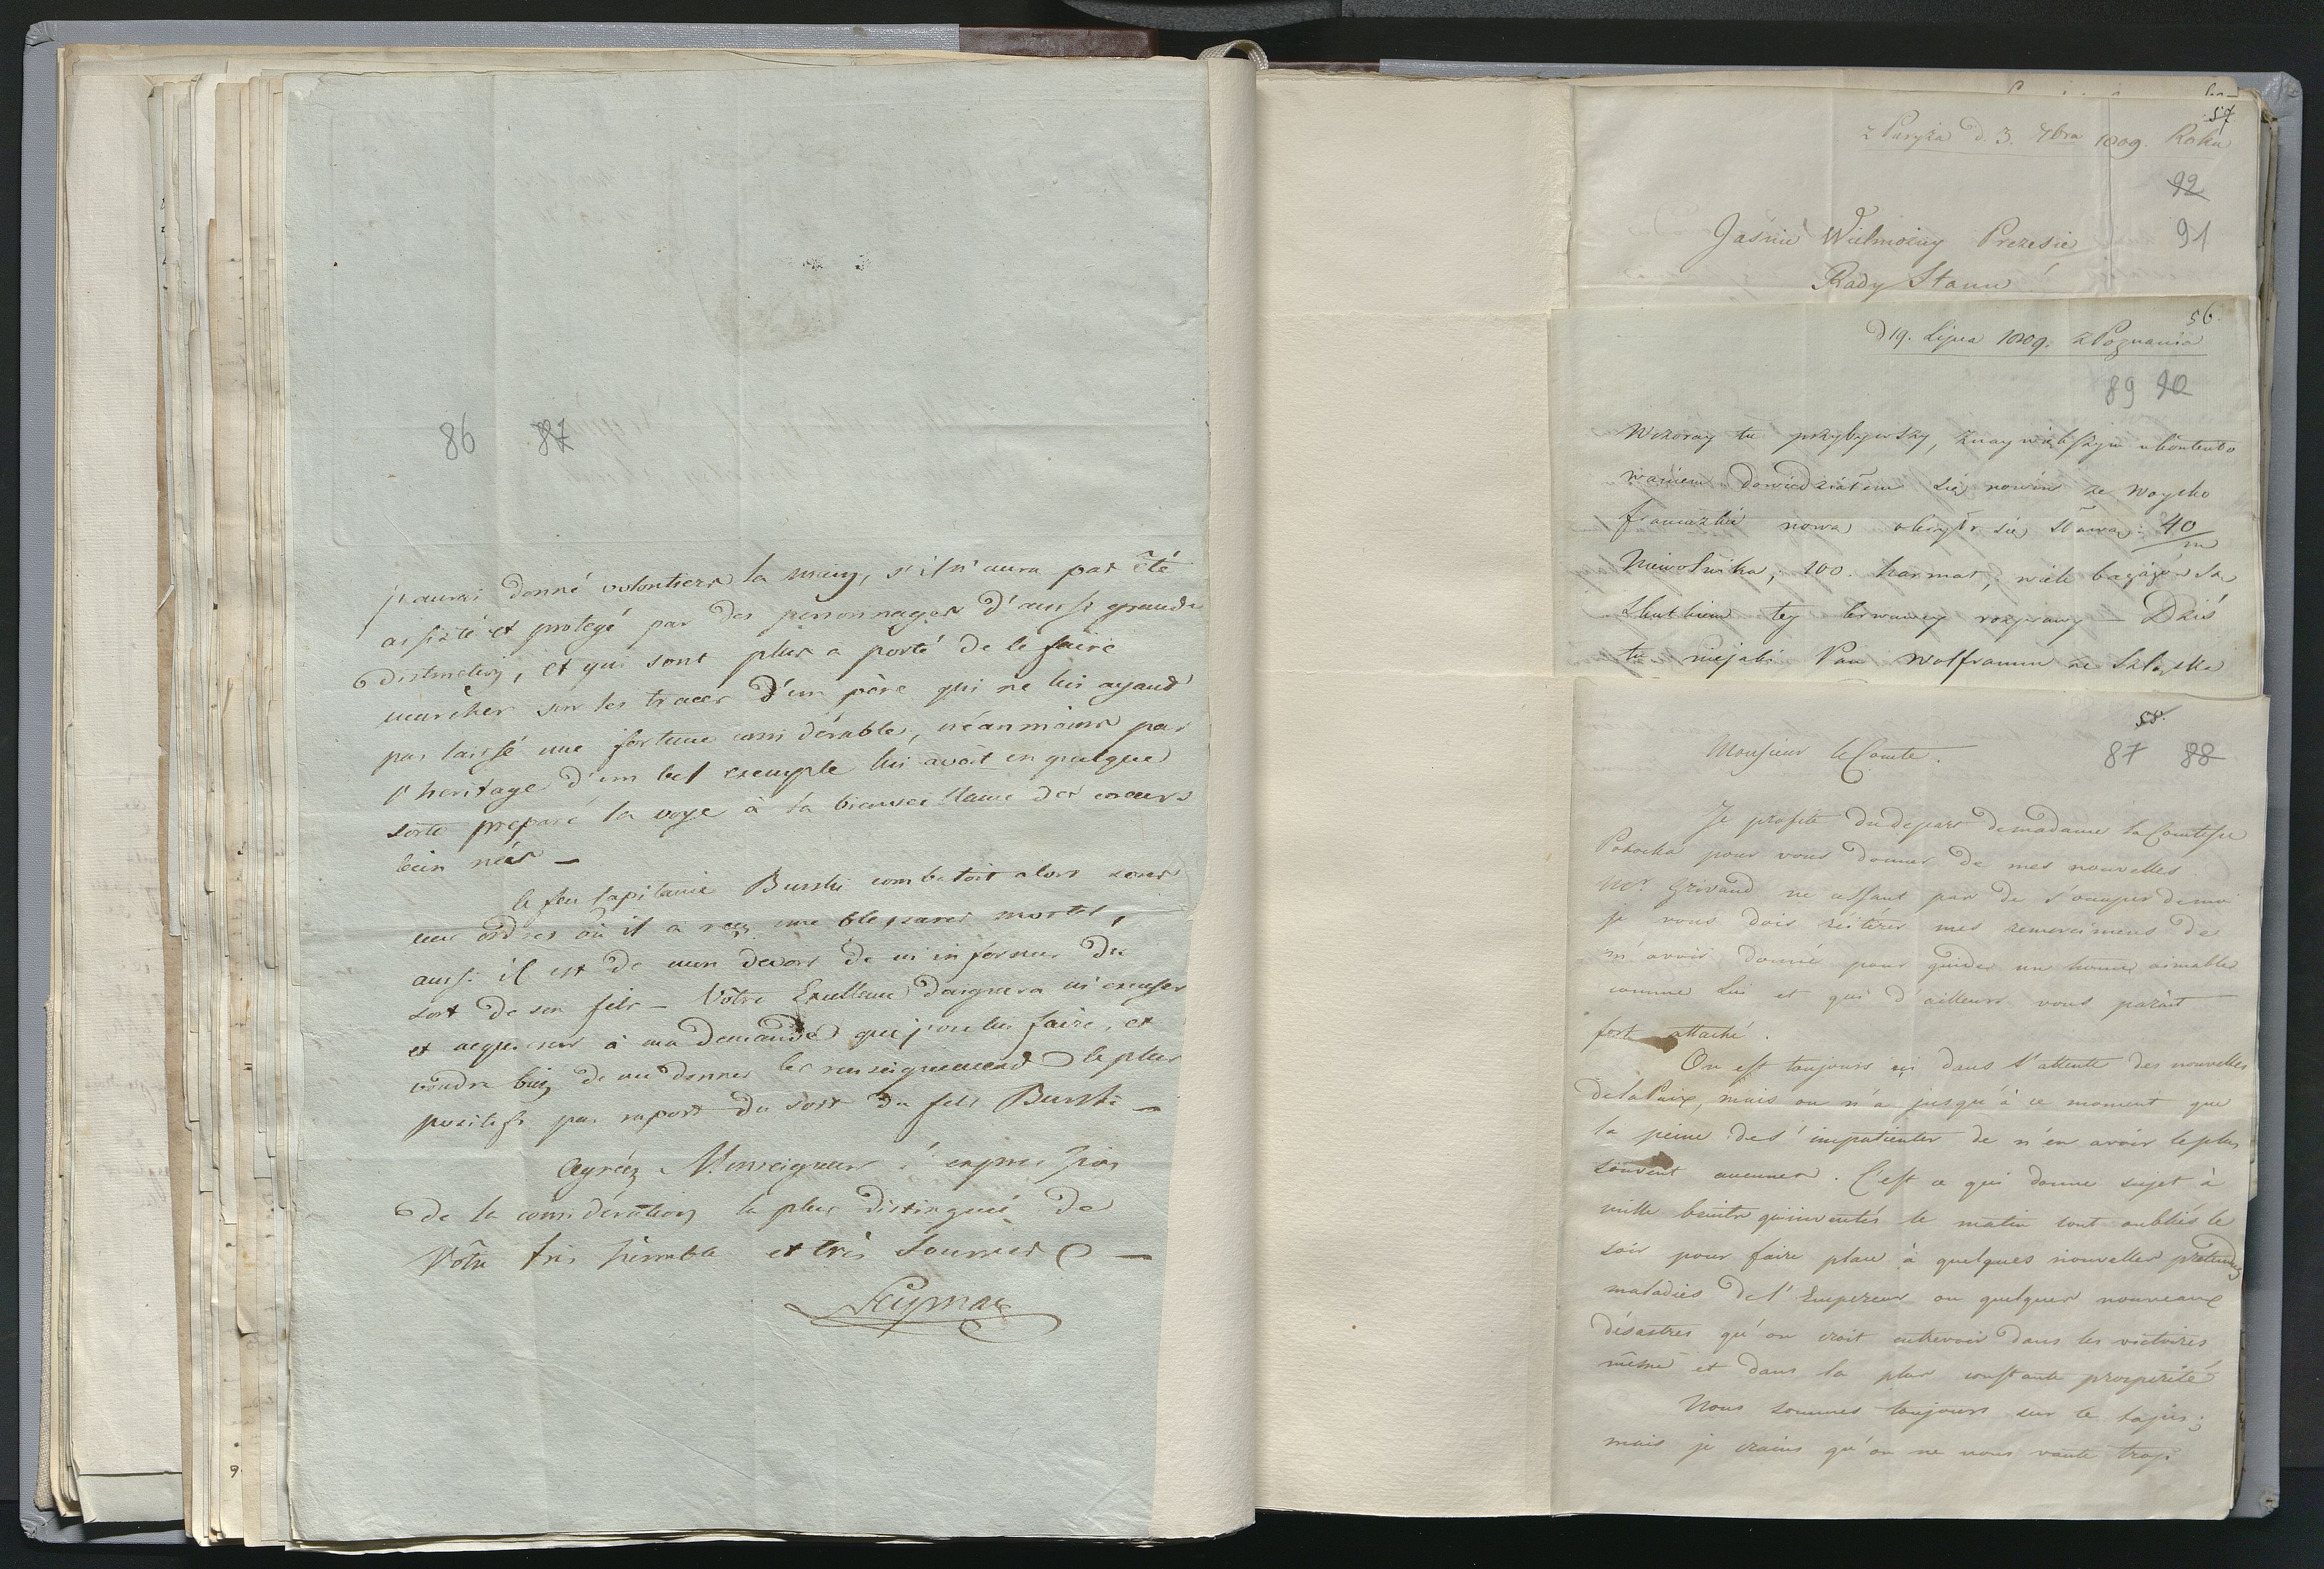 86 87
j'aurai donné volontiers la main, s'il n'aura pas été
assisté et protegé par des personnages d'aussi grande
distinction, et qui sont plus a porté de le faire
marcher sur les traces d'un père qui ne lui ayant
pas laissé une fortune considérable, néanmoins par
l'heritage d'un bel exemple lui avoit en quelque
sorte preparé la voye à la bienveillance des coeurs
bien nées —
le feu Capitaine Burski combatoit alors sous
mes ordres où il a reçu une blessure mortel,
aussi il est de mon devoir de m'informer du
sort de son fils — Vôtre Excellence daignera m'excuser
et acquiescer à ma demande que j'ose lui faire, et
voudra bien de me donner les renseignements le plus
positifs par raport du sort du fils Burski —
Agréez Monseigneur l'expression
de la considération la plus distingué de
Vôtre très humble et très soumis —
57
z Paryża d. 3. 7bra 1809. Roku
92
91
Jaśnie Wielmożny Prezesie
Rady Stanu!
56.
d 19. Lipca 1809. z Poznania
89 90
Wczoray tu przybywszy, z naywiększym ukontento
waniem dowiedziałem się nowin ze woysko
francuzkie nową okryło się sławą: 40/m
Niewolnika, 100. harmat, wiele bagażów są
skutkiem tey krwawey rozprawy — Dziś
tu niejaki Pan Wolframm ze Szląska
58.
87 88
Monsieur le Comte.
Je profite du départ de madame la Comtesse
Potocka pour vous donner de mes nouvelles.
Mr. Grivaud ne cessant pas de s'occuper de moi
je vous dois réitérer mes remercimens de
m'avoir donné pour guide un homme aimable
comme Lui et qui d'ailleurs vous parait
fort attaché.
On est toujours ici dans l'attente des nouvelles
de la Paix, mais on n'a jusqu'à ce moment que
la peine de s'impatienter de n'en avoir le plus
souvent aucunes. C'est ce qui donne sujet à
mille bruits qu'inventés le matin sont oubliés le
soir pour faire place à quelques nouvelles prétendues
maladies de l'Empereur ou quelques nouveaux
désastres qu'on croit entrevoir dans les victoires
même et dans la plus constante prospérité
Nous sommes toujours sur le tapis;
mais je crains qu'on ne nous vante trop.